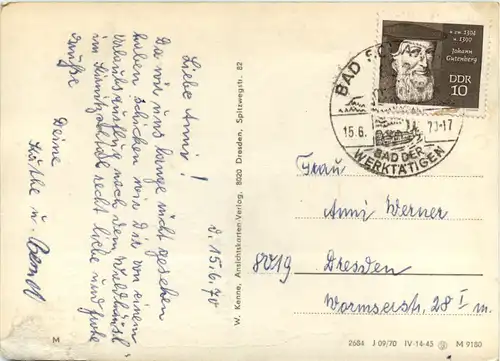 d. 15.6.70
Liebe Anni!
Da wir uns lange nicht gesehen
haben schicken wir Dir von einem
Urlaubsausflug nach dem
im Kirnitzschtal recht liebe und gute
Grüße
Deine
Käthe u. Bernd
W. Kenne, Ansichtskarten-Verlag, 8020 Dresden, Spitzwegstr. 82
BAD SCHAN
15.6. 70-17
BAD DER
WERKTÄTIGEN
Johann
Gutenberg
DDR
10
Frau
Anni Werner
8019 Dresden
Wormserstr. 28 I m.
M
2684 J 09/70 IV-14-45 M 9180